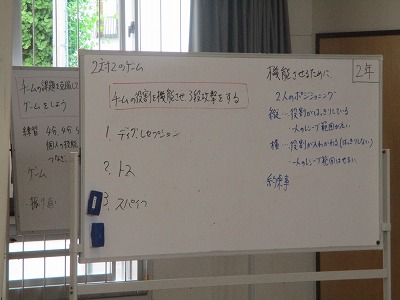 チームの課題を意識して
ゲームをしよう
練習 4分 4分
個人の技能
つなぐ
ゲーム
振り返り
2対2のゲーム
チームの役割を機能させ、3段攻撃をする
1. ディグ、レセプション
2. トス
3. スパイク
2年
機能させるために、
2人のポジショニング
縦…役割がはっきりしている
一人のレシーブ範囲が広い
横…役割が入れかわる(はっきりしない)
一人のレシーブ範囲はせまい
約束事